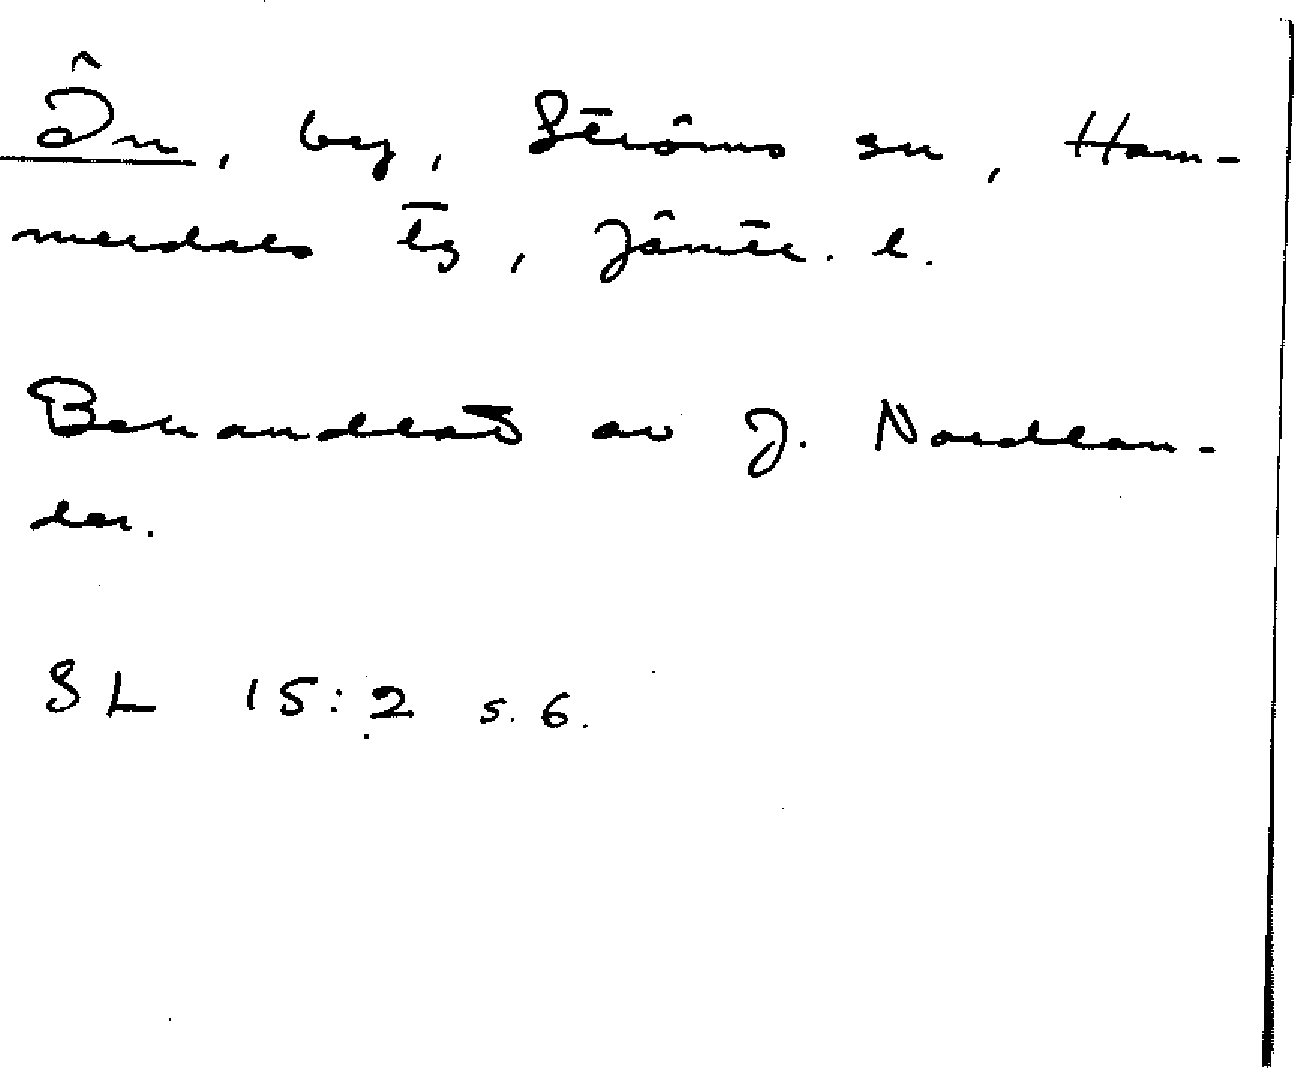 Ön, by, Ströms sn, Ham-
merdals tg, Jämtl. l.
Behandlat av J. Nordlan-
der.
SL 15:2 s. 6.